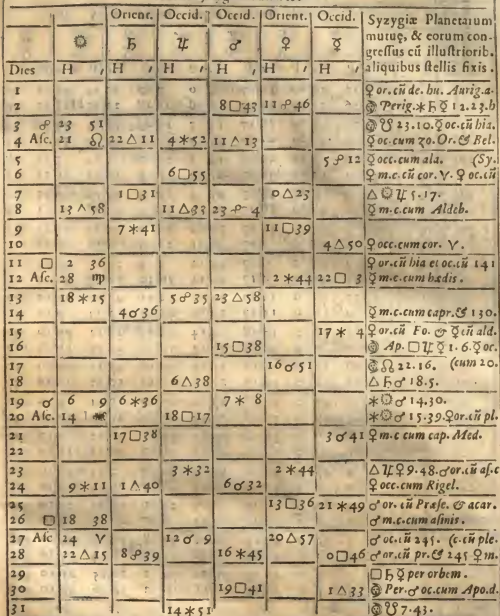 Orient. Occid. Occid. Orient. Occid. Syzygiæ Planetarum
☼ ♄ ♃ ♂ ♀ ☿ mutuę, & eorum con-
gressus cũ illustriorib.
Dies H ′ H ′ H ′ H ′ H ′ H ′ aliquibus stellis fixis.
1 ♀ or. cũ de. hu. Aurig. a.
2 8□43 11☍46 Perig. ⚹ ♄ ☿ 12.23. h
3 ☍ 23 51 ☋ 23.10. ☿ oc. cũ hia.
4 Asc. 21 ♌ 22△11 4⚹52 11△13 ☿ oc. cum 70. Or. & Bel.
5 5☍12 ☿ occ. cum ala. (Sy.
6 6□55 ☿ m. c. cũ cor. ♈. ♀ oc. cũ
7 1□31 0△23 △ ☼ ♃ 5.17.
8 13△58 11△33 23☍4 ☿ m. c. cum Aldeb.
9 7⚹41 11□39
10 4△50 ♀ occ. cum cor. ♈.
11 □ 2 36 ♀ or. cũ hia et oc. cũ 141
12 Asc. 28 ♍ 2⚹44 22□3 ☿ m. c. cum hædis.
13 18⚹15 5☍35 23△58
14 4☌36 ☿ m. c. cum capr. & 130.
15 17⚹4 ♀ or. cũ Fo. & ☿ cũ ald.
16 15□38 Ap. □ ♃ ☿ 1.6. ☿ oc.
17 16☌51 ☊ 22.16. (cum 20.
18 6△38 △ ♄ ♂ 18.5.
19 ☌ 6 9 6⚹36 7⚹8 ⚹ ☼ ♂ 14.30.
20 Asc. 14 ♒ 18□17 ⚹ ☼ ♂ 15.39. ♀ or. cũ pl.
21 17□38 3☌41 ♀ m. c cum cap. Med.
22
23 3⚹32 2⚹44 △ ♃ ♀ 9.48. ♂ or. cũ as. c
24 9⚹11 1△40 6☌32 ♀ occ. cum Rigel.
25 13□36 21⚹49 ♂ or. cũ Præse. & acar.
26 □ 18 38 ♂ m. c. cum asinis.
27 Asc 24 ♈ 12☌9 20△57 ♂ oc. cũ 245. (c. cũ ple.
28 22△15 8☍39 16⚹45 0□46 ♂ or. cũ pr. & 245 ♀ m.
29 □ ♄ ☿ per orbem.
30 19□41 1△33 Per. ♂ oc. cum Apo. d.
31 14⚹51 ☋ 7.43.